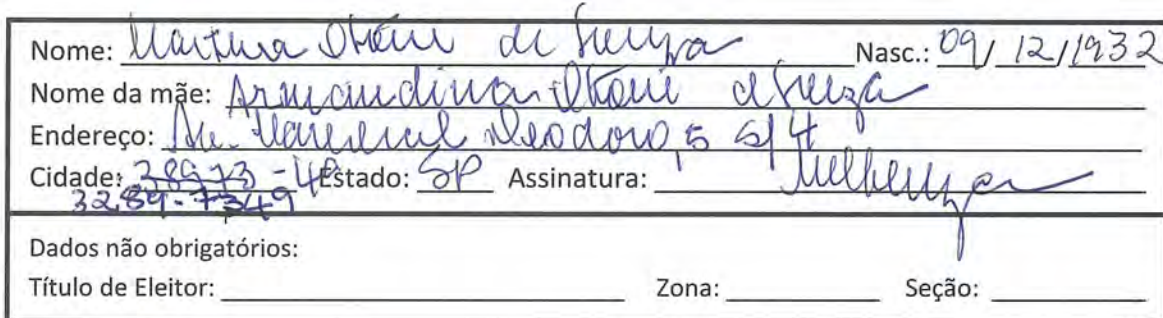 Nome: de Souza Nasc.: 09/12/1932
Nome da mãe: Armandina de Souza
Endereço: Av. Marechal Deodoro, 5 s/4
Cidade: 38973-49 Estado: SP Assinatura:
3289-7349
Dados não obrigatórios:
Título de Eleitor: Zona: Seção: